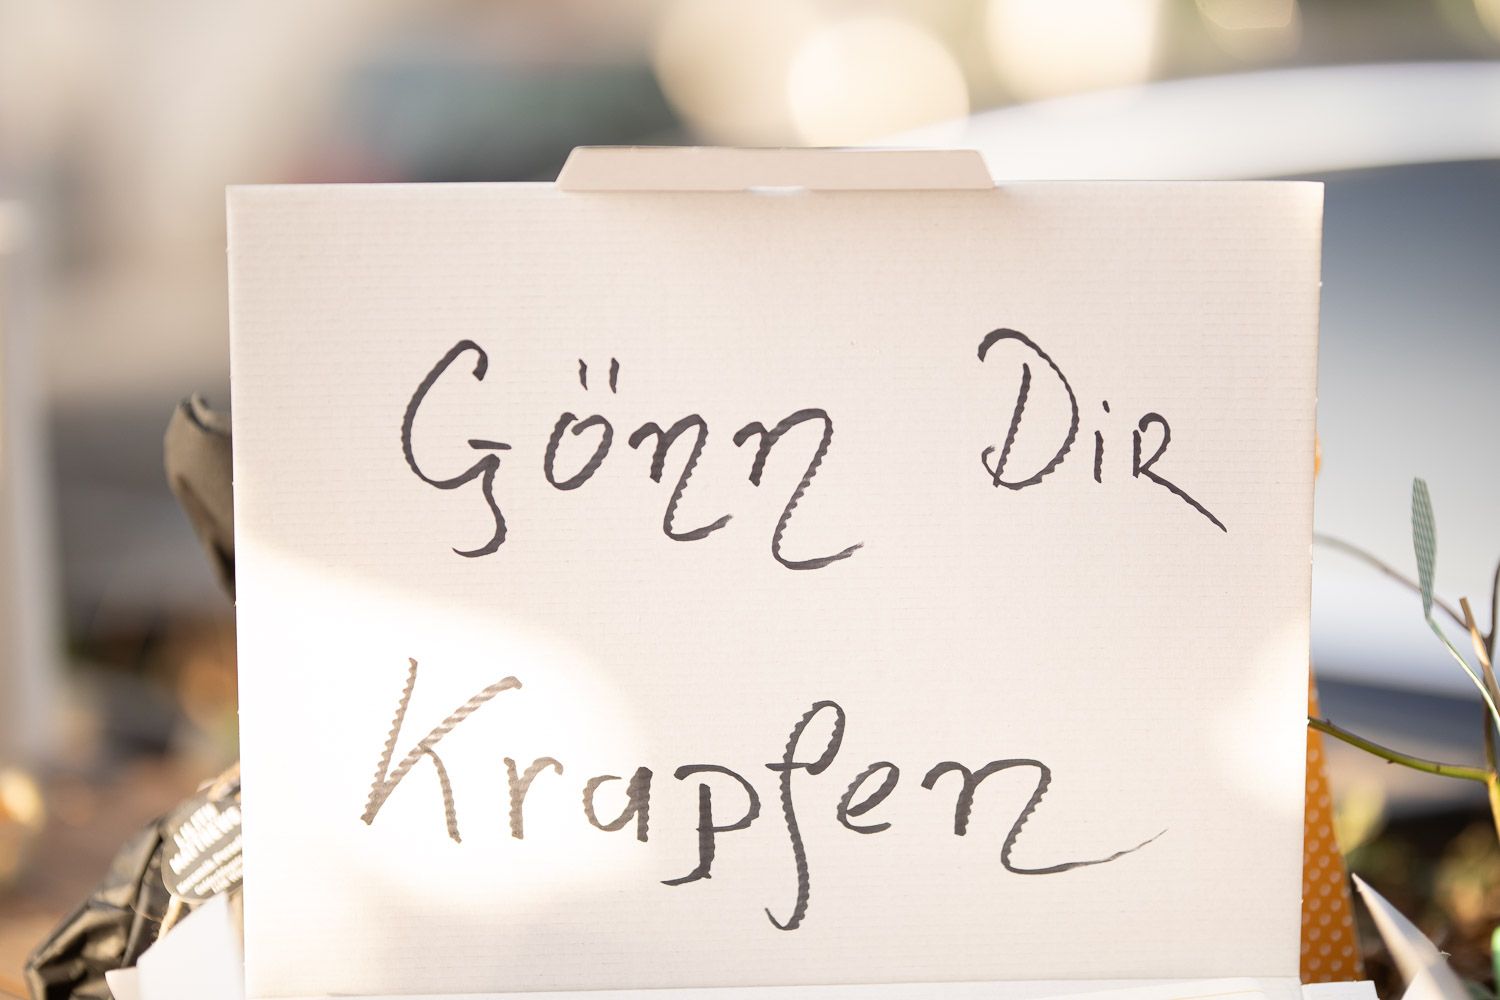 Gönn Dir
Krapfen